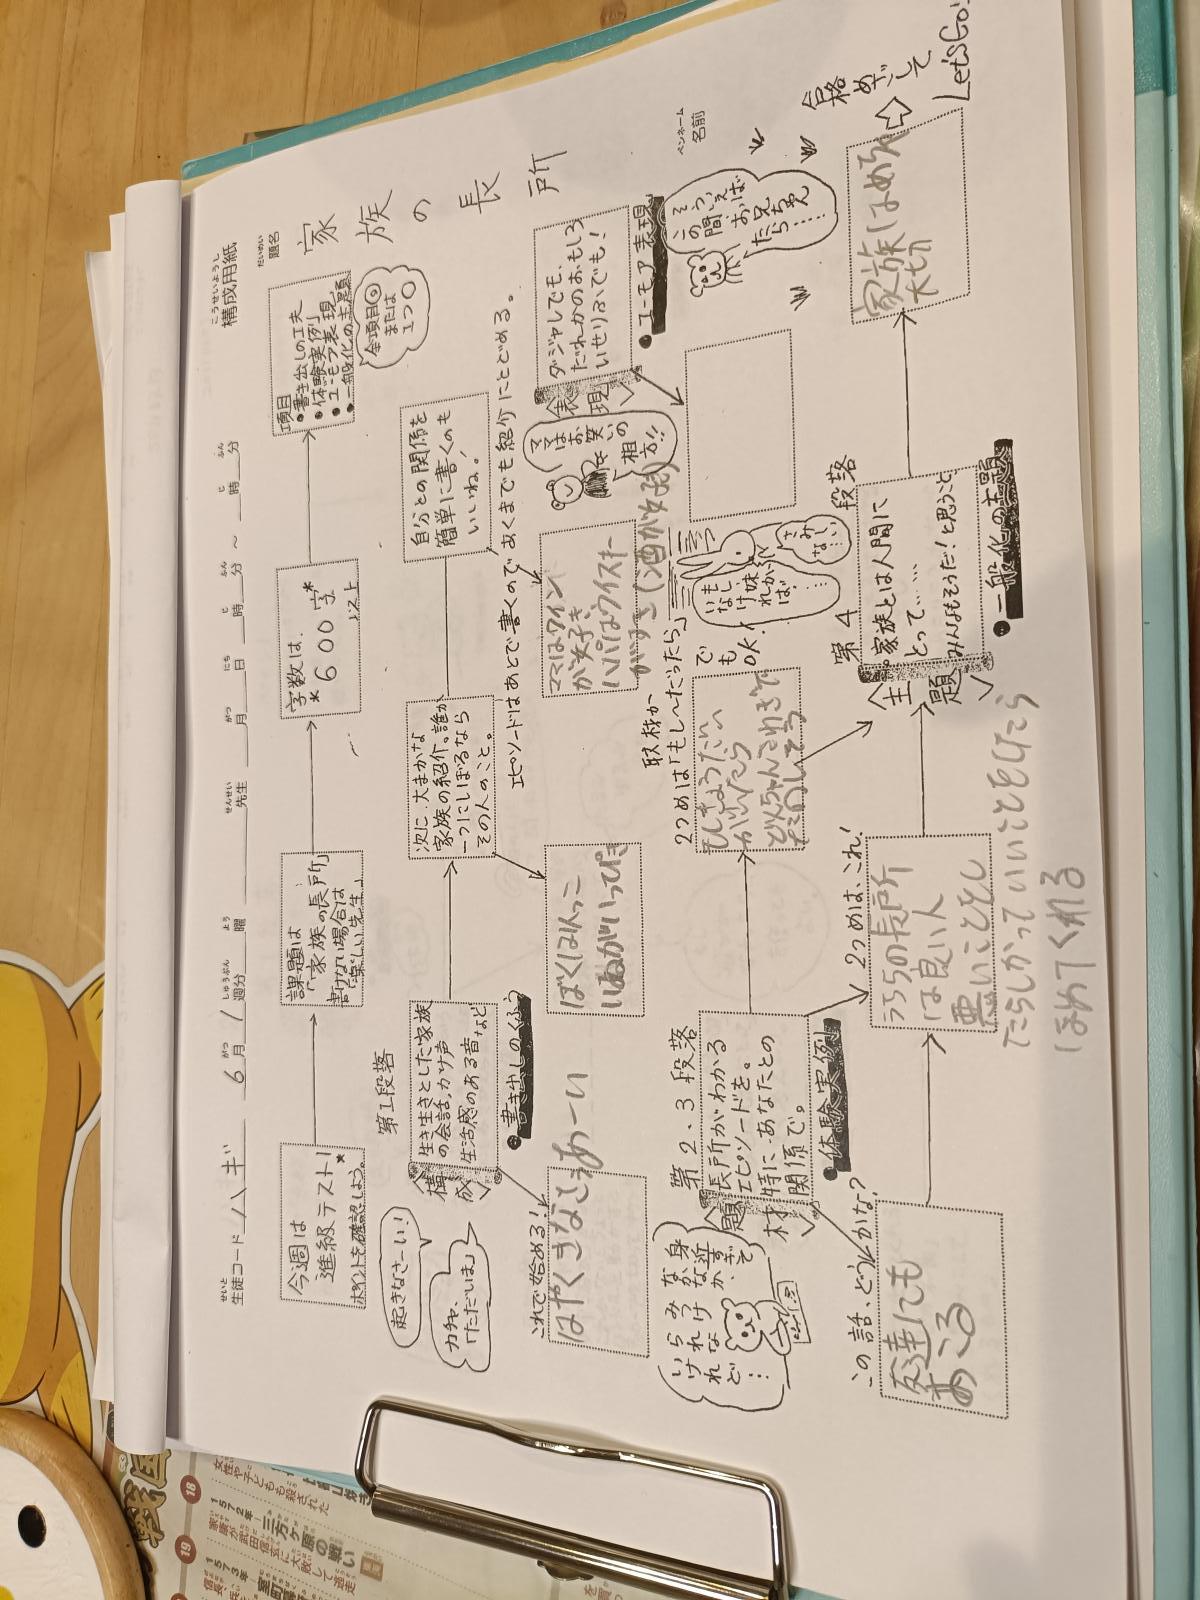 こうせいようし
構成用紙
せいと
生徒コード ハギ 6月 がつ 1週分 しゅうぶん 曜 よう 先生 せんせい 月 がつ 日 にち 時 じ 分 ふん ～ 時 じ 分 ふん
だいめい
題名
家族の長所
ペンネーム
名前
今週は
進級テスト！
ポイントを確認しよう。
課題は
「家族の長所」
書けない場合は
「楽しい先生」
字数は、
*600字*
以上
項目
・書き出しの工夫
・体験実例
・ユーモア表現
・一般化の主題
全項目◎
または
1つ○
起きなさーい！
ガチャ、
「ただいま」
第1段落
〈構成〉
生き生きとした家族
の会話、かけ声
生活感のある音など
●書き出しのくふう
次に、大まかな
家族の紹介。誰か
一つにしぼるなら
その人のこと。
自分との関係を
簡単に書くのも
いいね！
エピソードはあとで書くので、あくまでも紹介にとどめる。
これで始める！
はやくきなさぁーい
ぼくはんっこ
いぬがいっぴき
ママはワイン
が好き
パパはウイスキー
がすき(酒が好き)
〈表現〉
ダジャレでも、
だれかのおもしろ
いせりふいでも！
●ユーモア表現
ママは
お笑い
の
相方!!
そういえば
この間、おば
兄ちゃん
たら……
身近すぎて
なかなか、
みつけ
られな
いけれど…
第2、3段落
〈題材〉
長所がわかる
エピソードを。
特に、あなたとの
関係で。
●体験実例
取材か
2つめは「もし～だったら」
でも
OK！
もし
いなければ、
妹
さみ
しい…
この話、どうかな？
友達にも
おこる
2つめは、これ！
うちらの長所
は良い人
悪いことをし
たらしかっていいことをしたら
ほめてくれる
第4段落
〈主題〉
家族とは人間に
とって……
みんなもそうだ！と思うこと
●一般化の主題
家族はめちゃ
大切
合格
めざして
Let's Go!
18
女性や子どもも殺された
1572年
三方ヶ原の戦い
家康が武田信玄に大敗して逃走
19
1573年